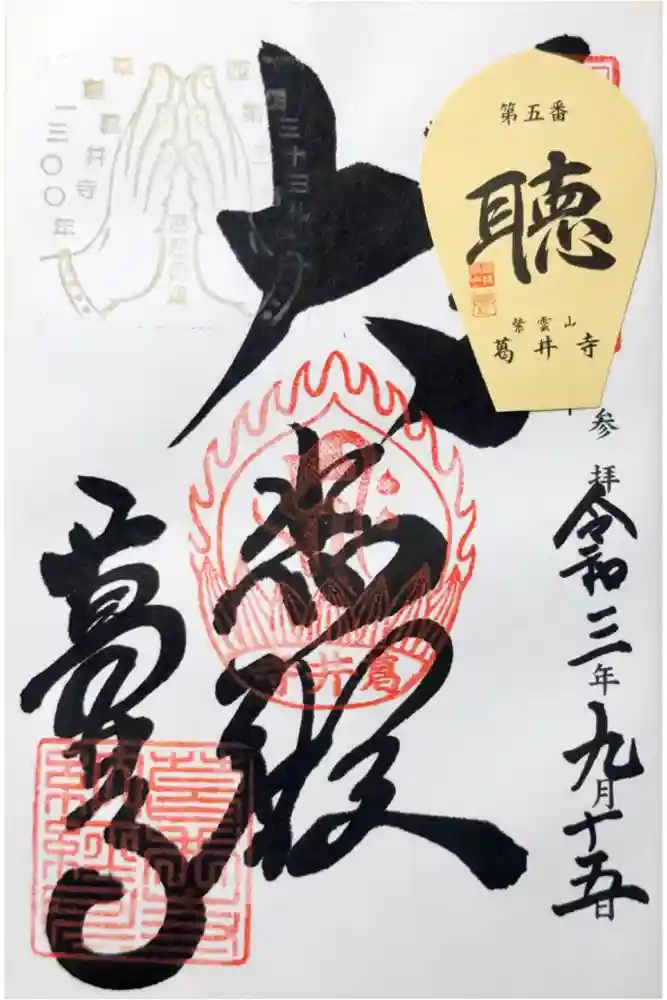 第五番
聴
紫雲山
葛井寺
参拝
令和三年九月十五日
大悲殿
葛井寺
西国三十三所
草創
葛井寺
一三〇〇年
葛井寺